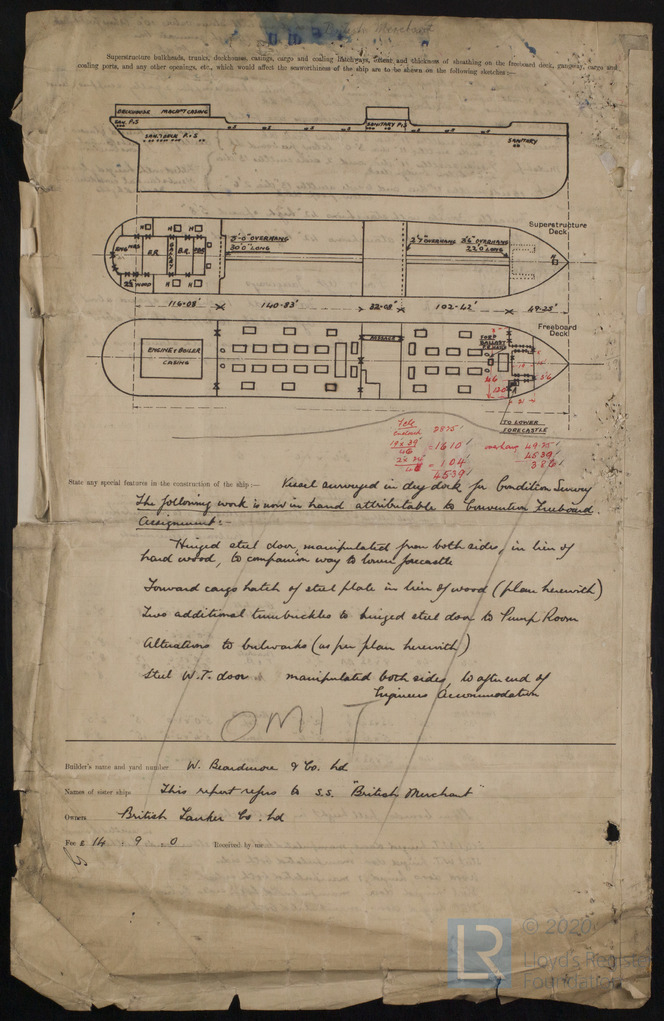 British Merchant
Superstructure bulkheads, trunks, deckhouses, casings, cargo and coaling hatchways, extent and thickness of sheathing on the freeboard deck, gangway, cargo and
coaling ports, and any other openings, etc., which would affect the seaworthiness of the ship are to be shown on the following sketches:—
DECKHOUSE MACHY CASING
SAN. P.S
SANITARY P.S
SANY DECK P & S
SANITARY
Superstructure
Deck
3'-0" OVERHANG
30'0" LONG
2'7" OVERHANG
3'6" OVERHANG
22'0" LONG
ENGRS
B.R
GALLEY
B.R.
H
H
H
H
H
116·08'
140·83'
32·08'
102·42'
49·25'
Freeboard
Deck
ENGINE & BOILER
CASING
PASSAGE
FORD
BALLAST
PUMPS
TO LOWER
FORECASTLE
2875'
= 1610'
= 104'
4539'
overhang 49.25'
4539'
386'
State any special features in the construction of the ship:— Vessel surveyed in dry dock for Condition Survey
The following work is now in hand attributable to Convention Freeboard
Assignment:-
Hinged steel door, manipulated from both sides, in lieu of
hard wood, to companion way to lower forecastle
Forward cargo hatch of steel plate in lieu of wood (plan herewith)
Two additional turnbuckles to hinged steel door to Pump Room
Alterations to bulwarks (as per plan herewith)
Steel W.T. door manipulated both sides, to after end of
Engineers Accommodation
OMIT
Builder's name and yard number W. Beardmore & Co. Ld
Names of sister ships This report refers to S.S. "British Merchant"
Owners British Tanker Co. Ld
Fee £ 14 . 9 . 0 Received by me
LR
© 2020
Lloyd's Register
Foundation